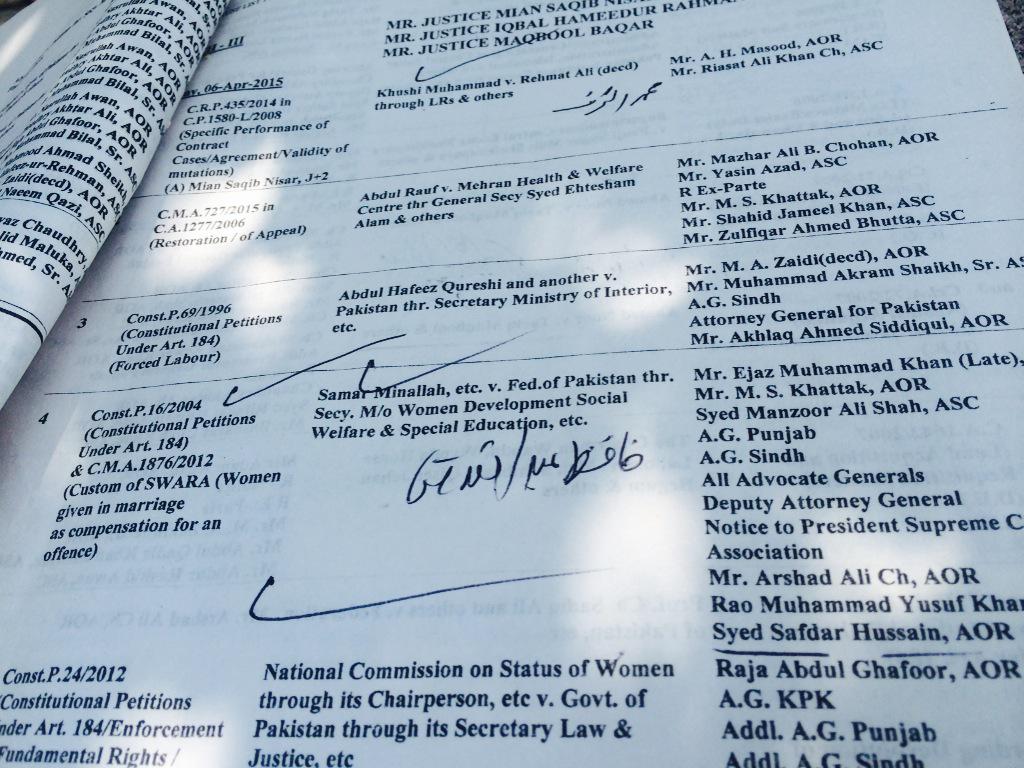 - III
MR. JUSTICE MIAN SAQIB
MR. JUSTICE IQBAL HAMEEDUR
MR. JUSTICE MAQBOOL BAQAR
06-Apr-2015
C.R.P.435/2014 in
C.P.1580-L/2008
(Specific Performance of
Contract
Cases/Agreement/Validity of
mutations)
(A) Mian Saqib Nisar, J+2
Khushi Muhammad v. Rehmat Ali (decd)
through LRs & others
Mr. A. H. Masood, AOR
Mr. Riasat Ali Khan Ch, ASC
C.M.A.727/2015 in
C.A.1277/2006
(Restoration / of Appeal)
Abdul Rauf v. Mehran Health & Welfare
Centre thr General Secy Syed Ehtesham
Alam & others
Mr. Mazhar Ali B. Chohan, AOR
Mr. Yasin Azad, ASC
R Ex-Parte
Mr. M. S. Khattak, AOR
Mr. Shahid Jameel Khan, ASC
Mr. Zulfiqar Ahmed Bhutta, ASC
3
Const.P.69/1996
(Constitutional Petitions
Under Art. 184)
(Forced Labour)
Abdul Hafeez Qureshi and another v.
Pakistan thr. Secretary Ministry of Interior,
etc.
Mr. M. A. Zaidi(decd), AOR
Mr. Muhammad Akram Shaikh, Sr.
A.G. Sindh
Attorney General for Pakistan
Mr. Akhlaq Ahmed Siddiqui, AOR
4
Const.P.16/2004
(Constitutional Petitions
Under Art. 184)
& C.M.A.1876/2012
(Custom of SWARA (Women
given in marriage
as compensation for an
offence)
Samar Minallah, etc. v. Fed.of Pakistan thr.
Secy. M/o Women Development Social
Welfare & Special Education, etc.
Mr. Ejaz Muhammad Khan (Late),
Mr. M. S. Khattak, AOR
Syed Manzoor Ali Shah, ASC
A.G. Punjab
A.G. Sindh
All Advocate Generals
Deputy Attorney General
Notice to President Supreme C
Association
Mr. Arshad Ali Ch, AOR
Rao Muhammad Yusuf Khan
Syed Safdar Hussain, AOR
Const.P.24/2012
Constitutional Petitions
nder Art. 184/Enforcement
Fundamental Rights /
National Commission on Status of Women
through its Chairperson, etc v. Govt. of
Pakistan through its Secretary Law &
Justice, etc
Raja Abdul Ghafoor, AOR
A.G. KPK
Addl. A.G. Punjab
Addl. A.G. Sindh